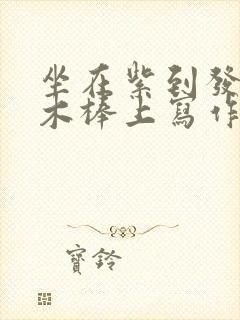 坐在紫到發
木棒上寫作
寶鈴